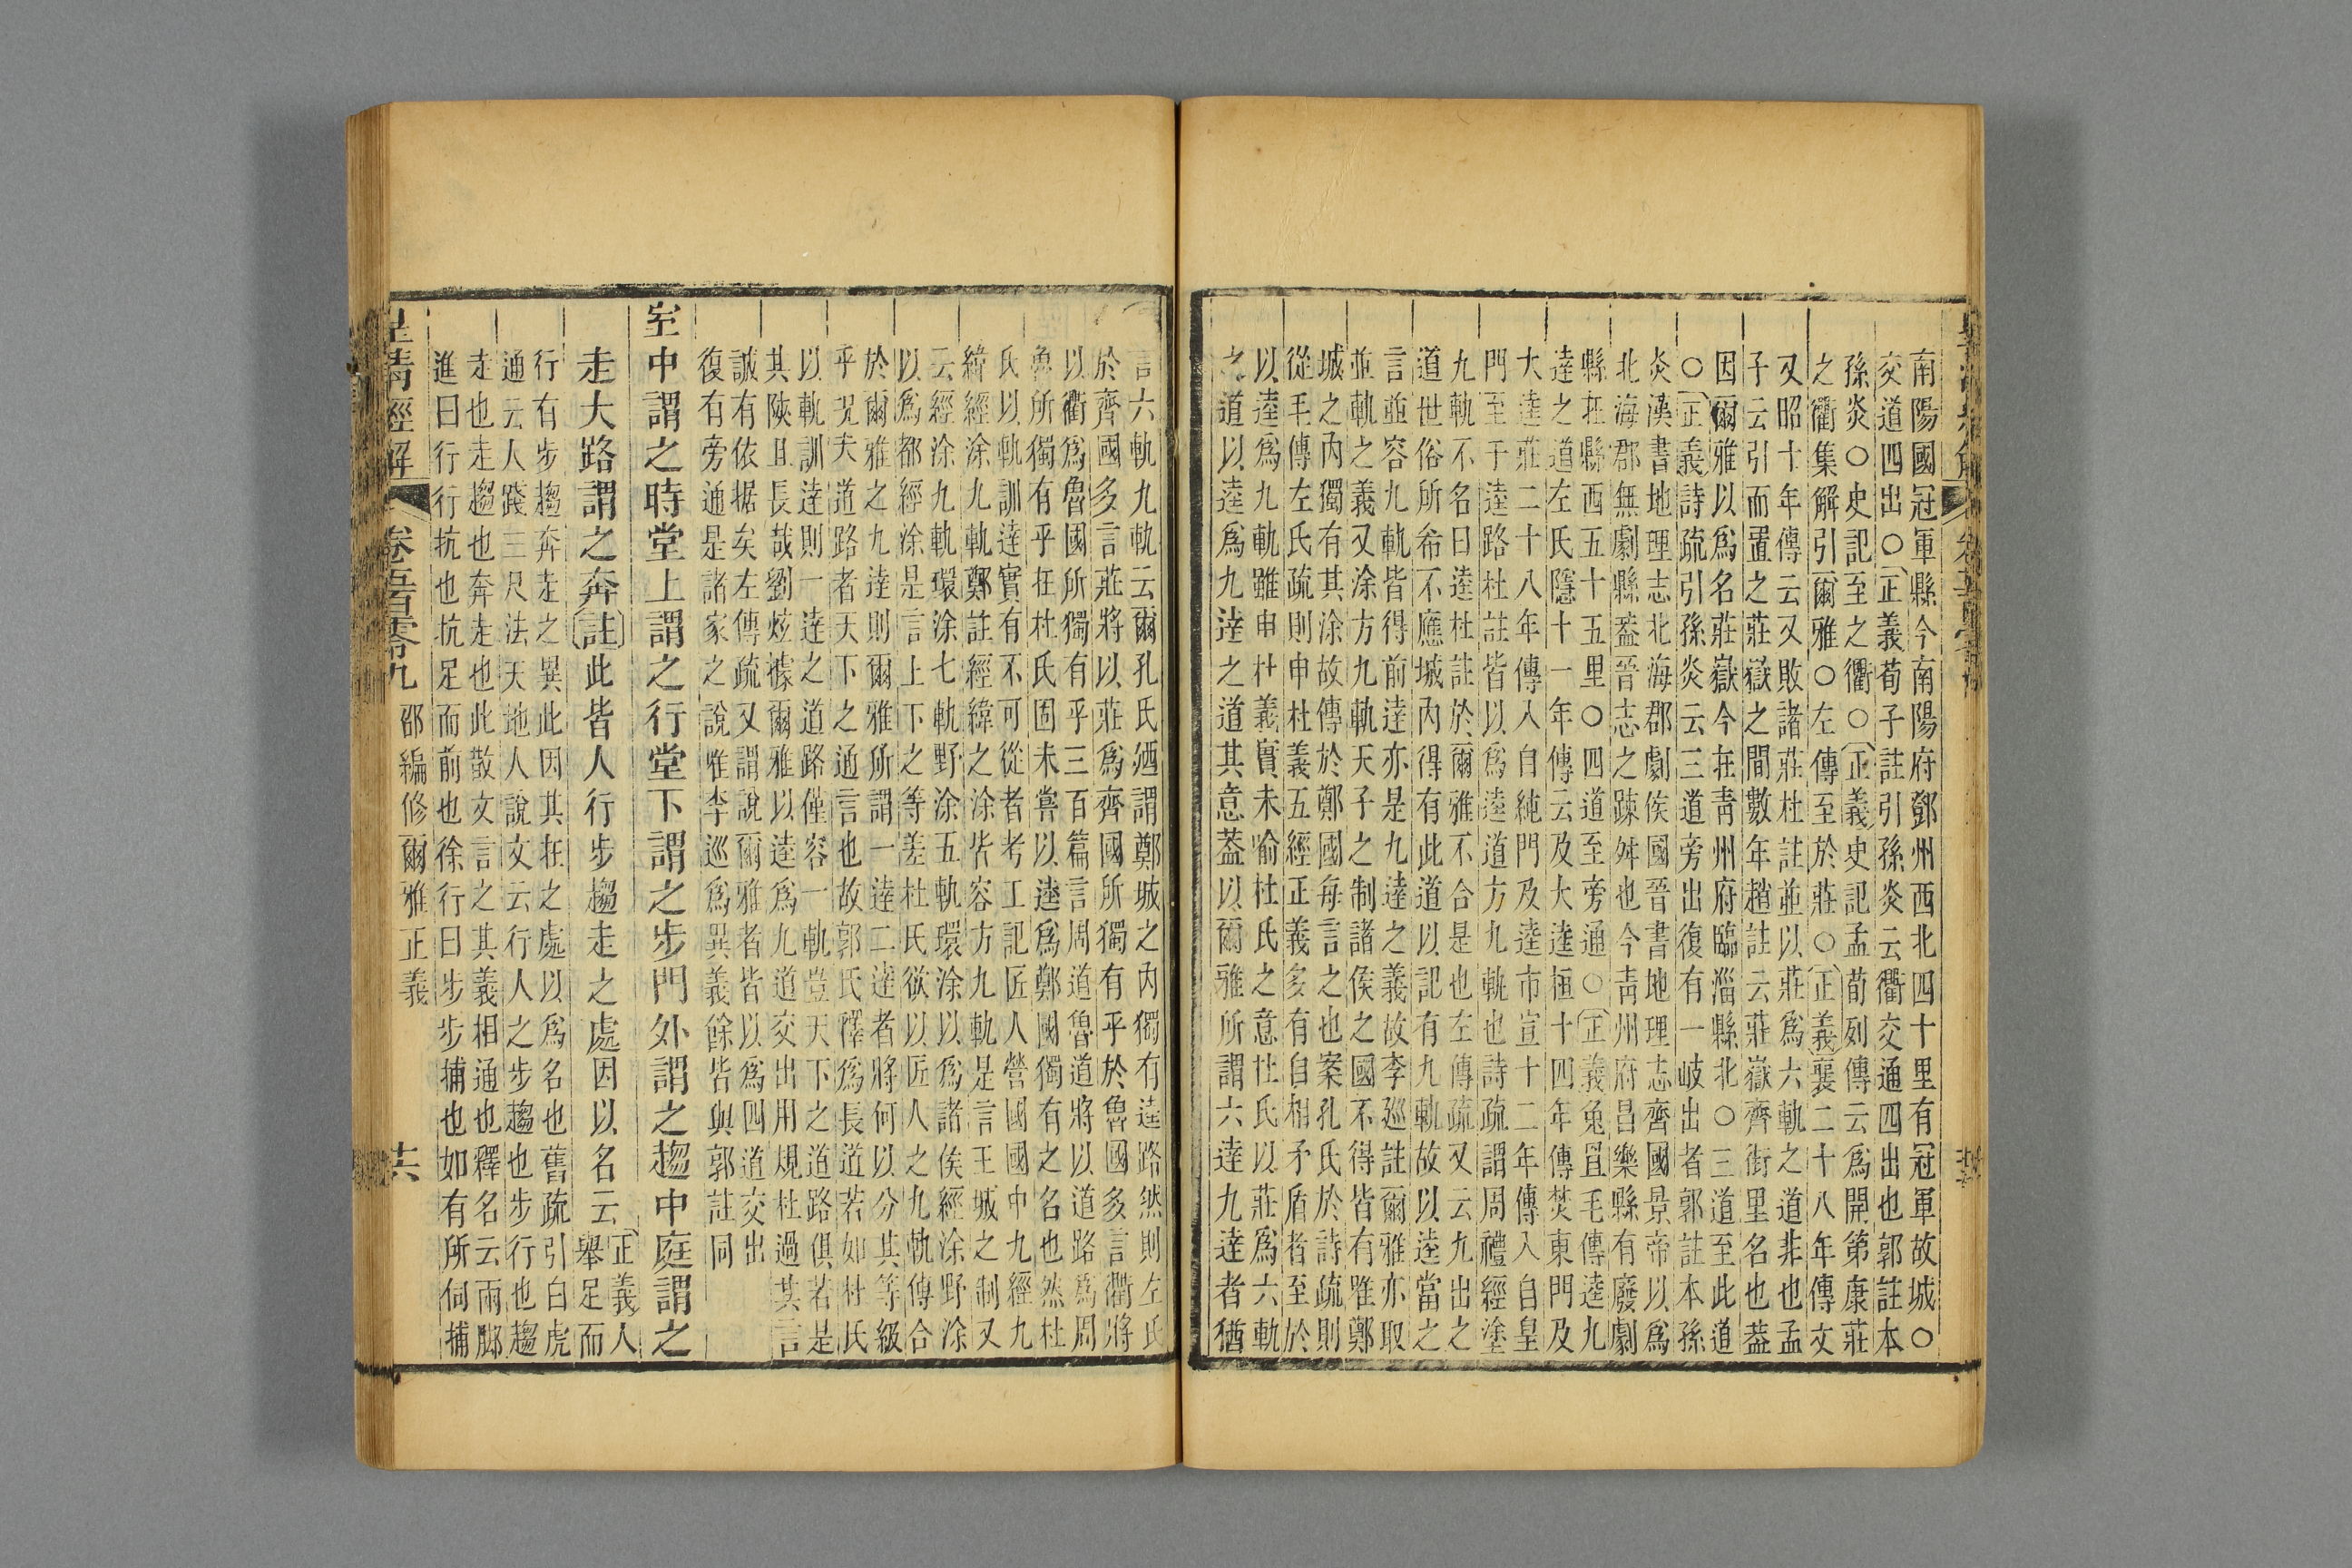 南陽國冠軍縣今南陽府鄧州西北四十里有冠軍故城○
交道四出○正義荀子註引孫炎云衢交通四出也郭註本
孫炎○史記至之衢○正義史記孟荀列傳云爲開第康莊
之衢集解引爾雅○左傳至於莊○正義襄二十八年傳文
又昭十年傳云又敗諸莊杜註並以莊爲六軌之道非也孟
子云引而置之莊嶽之間數年趙註云莊嶽齊街里名也蓋
因爾雅以爲名莊嶽今在靑州府臨淄縣北○三道至此道
○正義詩疏引孫炎云三道旁出復有一岐出者郭註本孫
炎漢書地理志北海郡劇侯國晉書地理志齊國景帝以爲
北海郡無劇縣蓋晉志之踈舛也今靑州府昌樂縣有廢劇
縣在縣西五十五里○四道至旁通○正義兔罝毛傳逵九
逵之道左氏隱十一年傳云及大逵桓十四年傳焚東門及
大逵莊二十八年傳入自純門及逵市宣十二年傳入自皇
門至于逵路杜註皆以爲逵道方九軌也詩疏謂周禮經塗
九軌不名曰逵杜註於爾雅不合是也左傳疏又云九出之
道世俗所希不應城內得有此道以記有九軌故以逵當之
言並容九軌皆得前逵亦是九逵之義故李廵註爾雅亦取
並軌之義又涂方九軌天子之制諸侯之國不得皆有雖鄭
城之內獨有其涂故傳於鄭國每言之也案孔氏於詩疏則
從毛傳左氏疏則申杜義五經正義多有自相矛盾者至於
以逵爲九軌雖申杜義實未喻杜氏之意杜氏以莊爲六軌
之道以逵爲九逵之道其意蓋以爾雅所謂六達九達者猶
言六軌九軌云爾孔氏廼謂鄭城之內獨有逵路然則左氏
於齊國多言莊將以莊爲齊國所獨有乎於魯國多言衢將
以衢爲魯國所獨有乎三百篇言周道魯道將以道路爲周
魯所獨有乎在杜氏固未嘗以逵爲鄭國獨有之名也然杜
氏以軌訓逵實有不可從者考工記匠人營國國中九經九
緯經涂九軌鄭註經緯之涂皆容方九軌是言王城之制又
云經涂九軌環涂七軌野涂五軌環涂以爲諸侯經涂野涂
以爲都經涂是言上下之等差杜氏欲以匠人之九軌傳合
於爾雅之九逵則爾雅所謂一達二達者將何以分其等級
乎況夫道路者天下之通言也故郭氏釋爲長道若如杜氏
以軌訓逵則一達之道路僅容一軌豈天下之道路俱若是
其陝且長哉劉炫據爾雅以逵爲九道交出用規杜過其言
誠有依据矣左傳疏又謂說爾雅者皆以爲四道交出
復有旁通是諸家之說唯李巡爲異義餘皆與郭註同
室中謂之時堂上謂之行堂下謂之步門外謂之趨中庭謂之
走大路謂之奔註此皆人行步趨走之處因以名云正義人舉足而
行有步趨奔走之異此因其在之處以爲名也舊疏引白虎
通云人踐三尺法天地人說文云行人之步趨也步行也趨
走也走趨也奔走也此散文言之其義相通也釋名云兩脚
進曰行行抗也抗足而前也徐行曰步步捕也如有所伺捕
皇淸經解 卷五百零九 邵編修爾雅正義 共